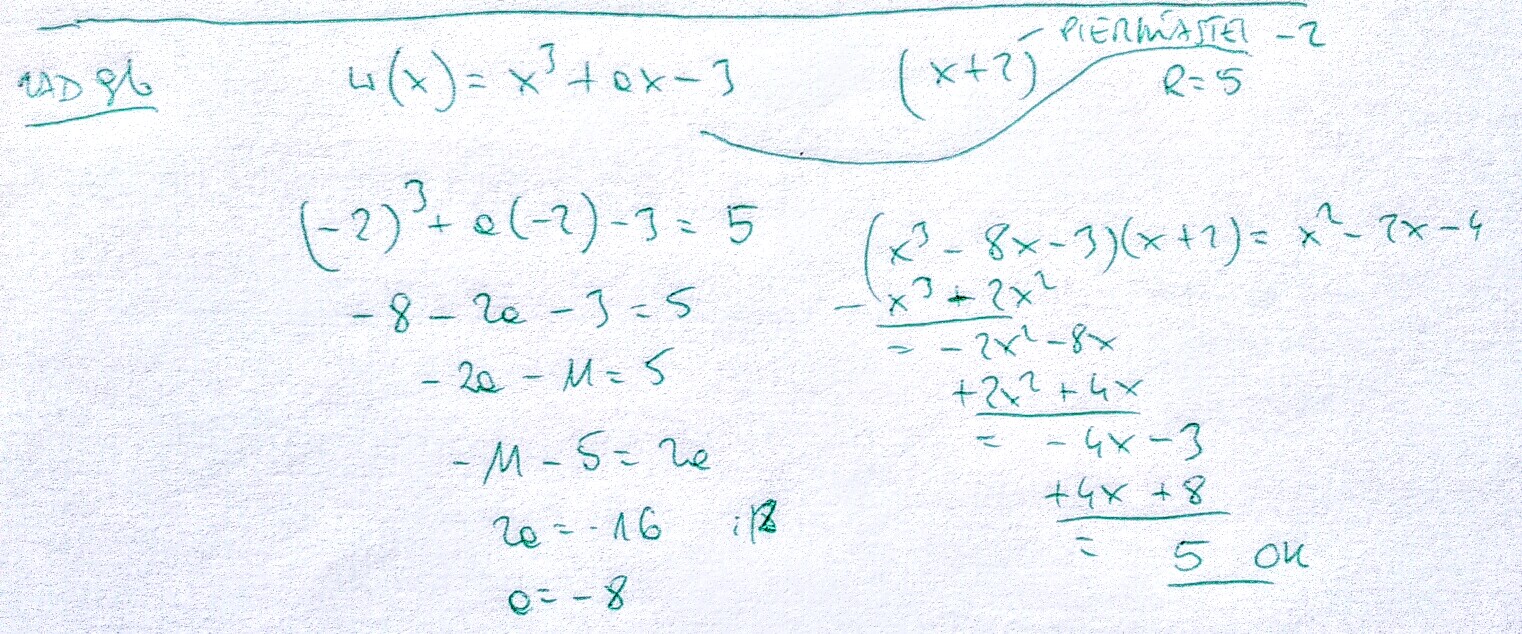 ZAD 96 W(x) = x³ + ax - 3 (x+2) PIERWIASTEK -2
R = 5
(-2)³ + a(-2) - 3 = 5
-8 - 2a - 3 = 5
-2a - 11 = 5
-11 - 5 = 2a
2a = -16 :2
a = -8
(x³ - 8x - 3)(x+2) = x² - 2x - 4
- x³ + 2x²
= - 2x² - 8x
+2x² + 4x
= - 4x - 3
+4x + 8
= 5 OK